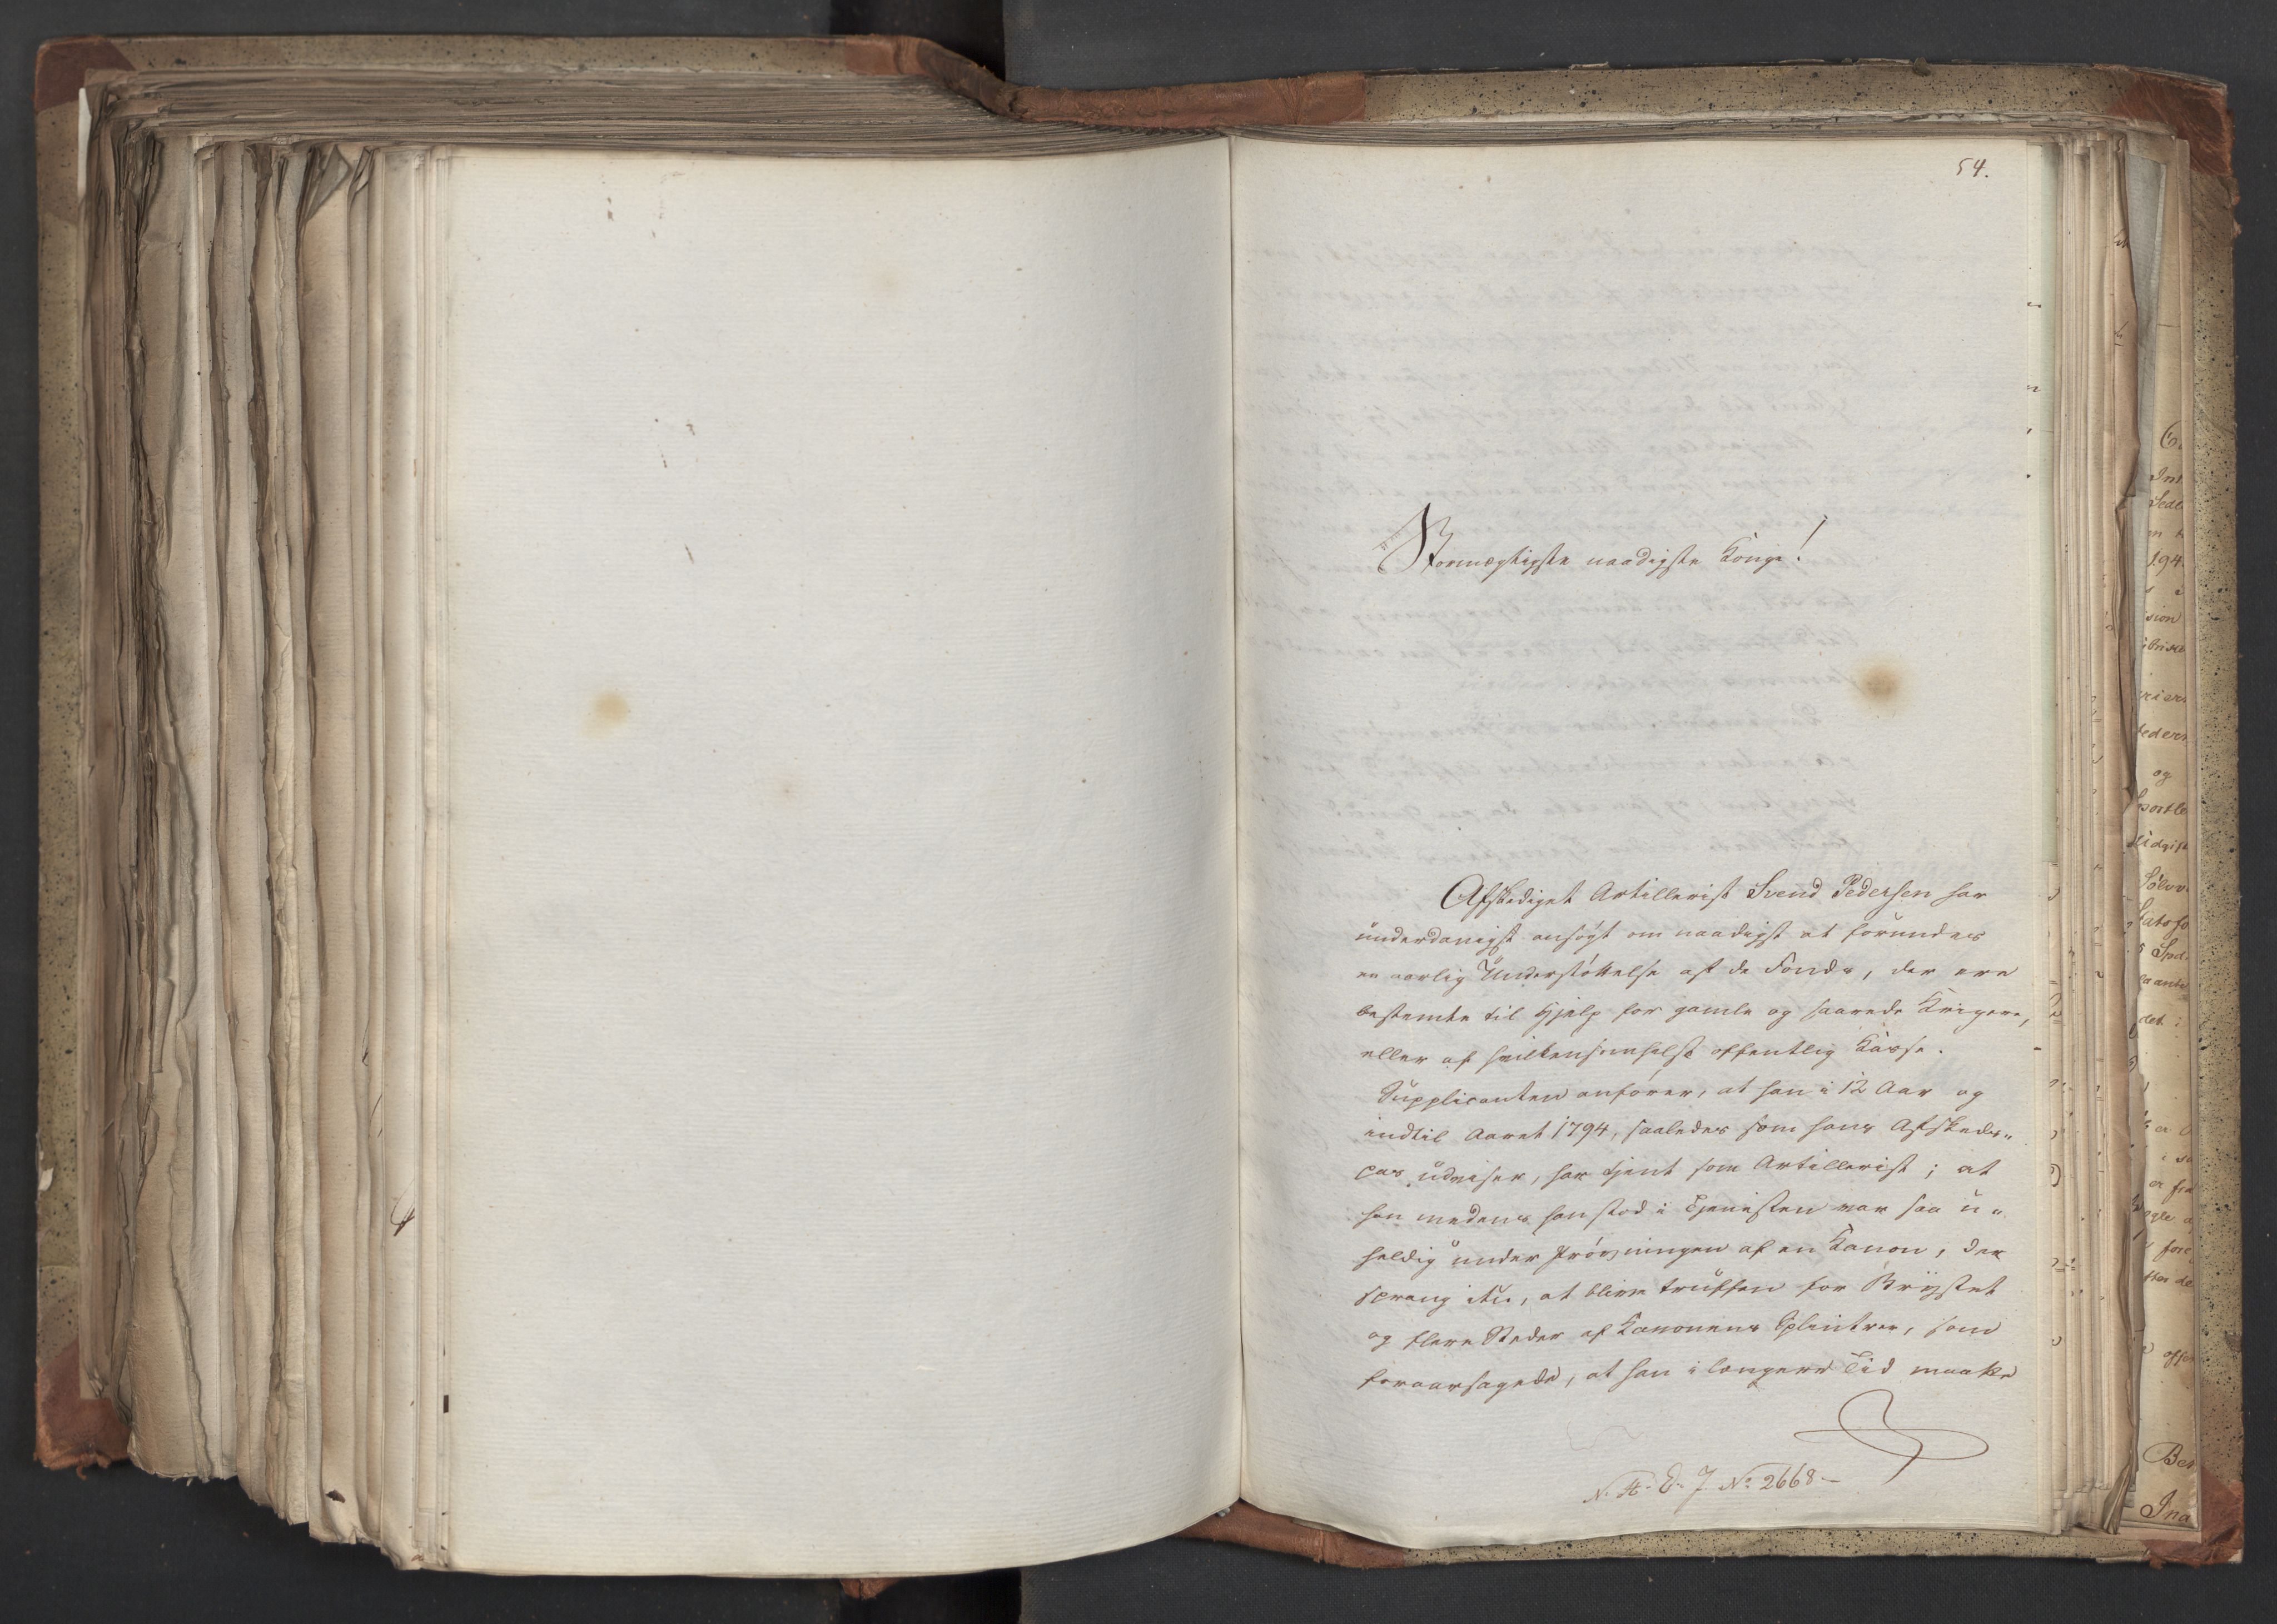 54.
Stormægtigste naadigste Konge!
Afskediget Artillerist Svend Pedersen har
underdanigst ansøgt om naadigst at forundes
en aarlig Understøttelse af de Fonds, der ere
bestemte til Hjælp for gamle og saarede Krigere,
eller af hvilkensomhelst offentlig Kasse.
Supplicanten anfører, at han i 12 Aar og
indtil Aaret 1794, saaledes som hans Afskeds-
pas udviser, har tjent som Artillerist; at
han medens han stod i Tjenesten var saa u-
heldig under Prøvningen af en Kanon, der
sprang itu, at blive truffen for Brystet
og flere Steder af Kanonens Splinter, som
foraarsagede, at han i længere Tid maatte
N. H. E. J. No 2668-